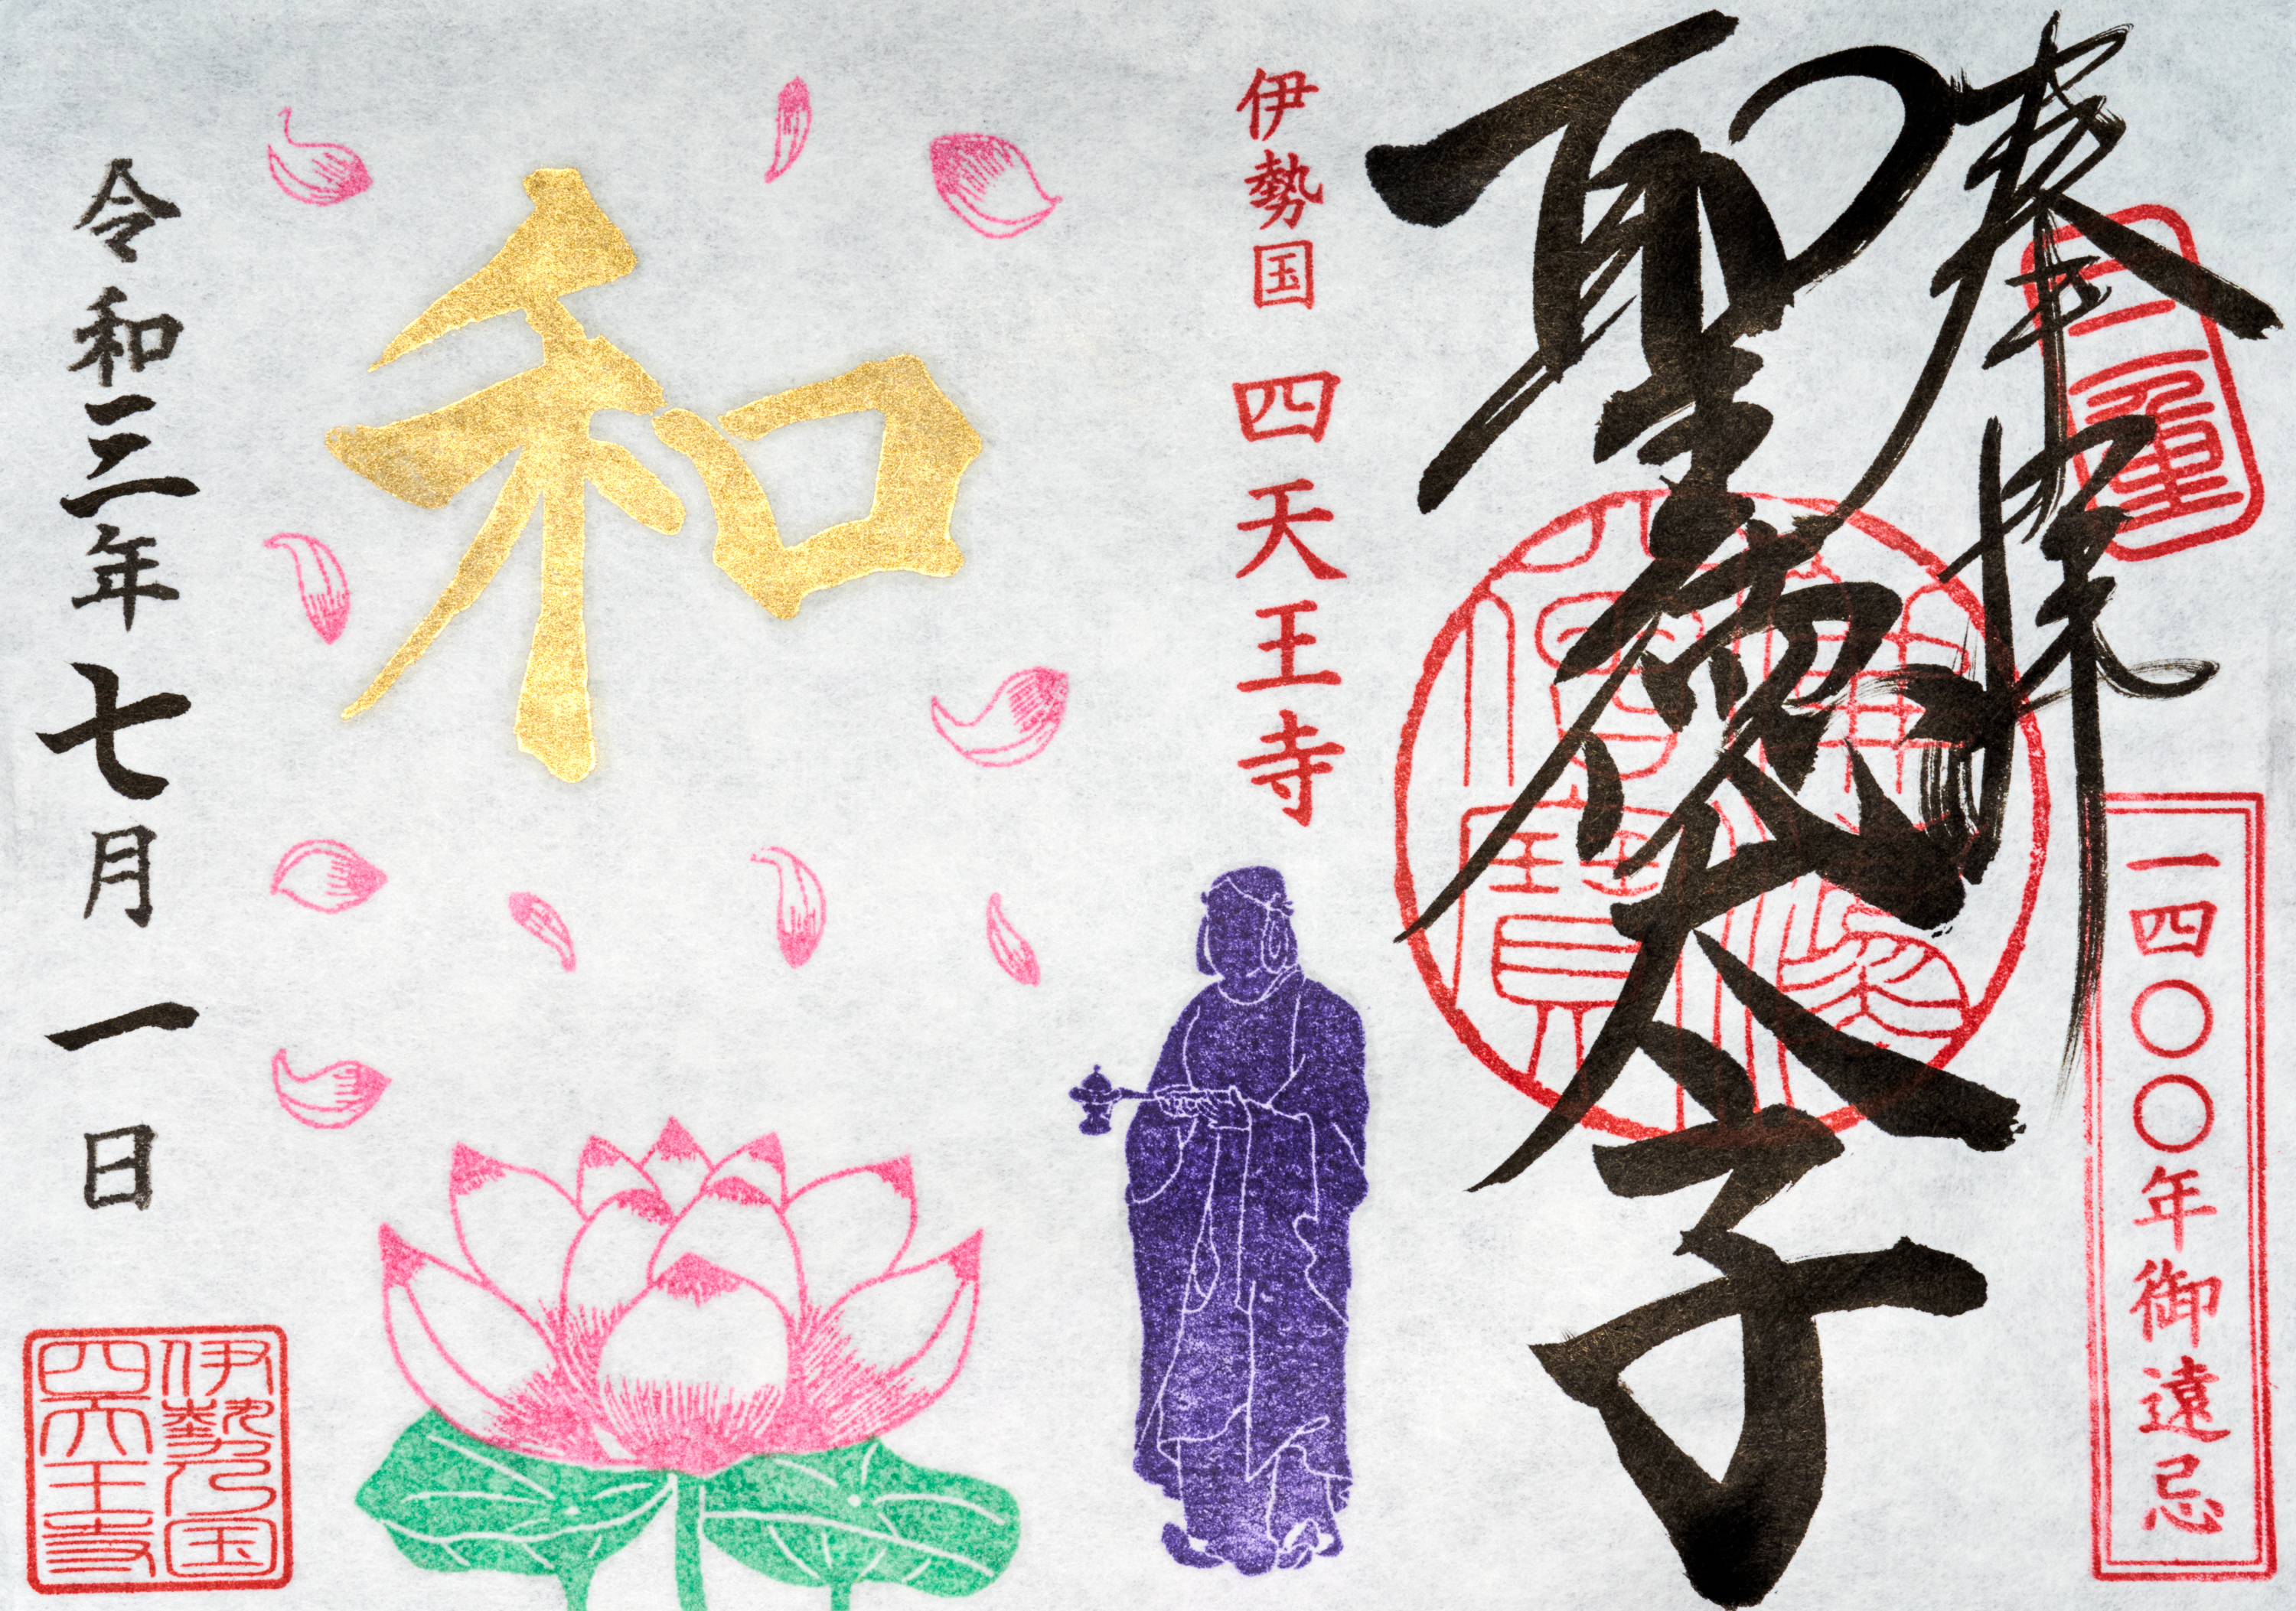 奉拝
三重
一四〇〇年御遠忌
聖徳太子
佛法
僧寶
伊勢国 四天王寺
和
令和三年七月一日
伊勢国
四天王寺